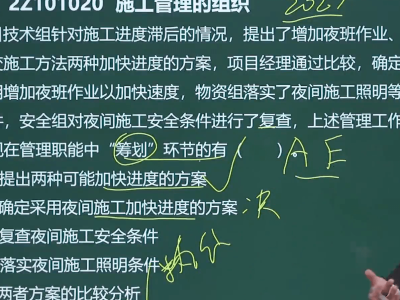 2Z101020 施工管理的组织
技术组针对施工进度滞后的情况，提出了增加夜班作业、
施工方法两种加快进度的方案，项目经理通过比较，确定
增加夜班作业以加快速度，物资组落实了夜间施工照明等
，安全组对夜间施工安全条件进行了复查，上述管理工作
现在管理职能中“筹划”环节的有（ ）。A E
提出两种可能加快进度的方案
确定采用夜间施工加快进度的方案 决
复查夜间施工安全条件
落实夜间施工照明条件
两者方案的比较分析